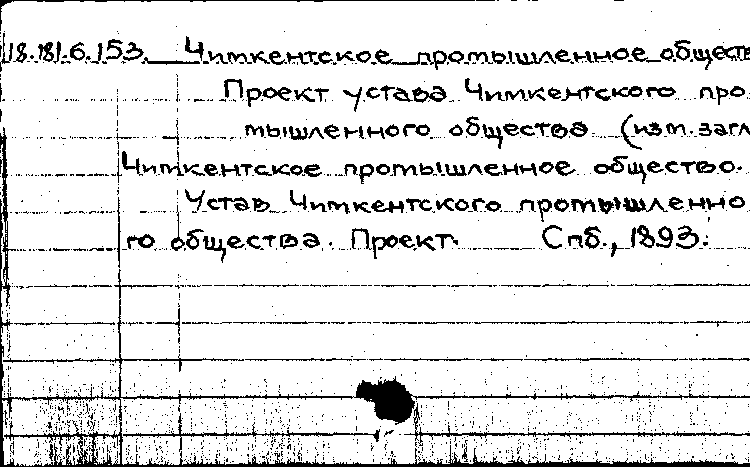 18.181.6.153. Чимкентское промышленное обществ
Проект устава Чимкентского про
мышленного общества (изм. загл
Чимкентское промышленное общество.
Устав Чимкентского промышленно
го общества. Проект. Спб., 1893.